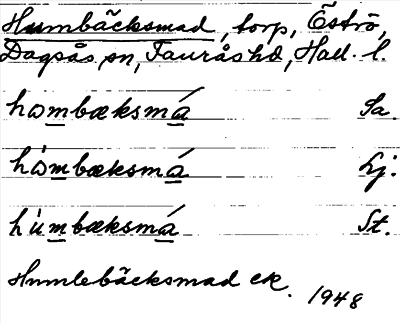 Humbäcksmad, torp, Öströ,
Dagsås sn, Faurås hd, Hall. l.
hombæksmá Sa.
hòmbæksmá Lj.
hùmbæksmá St.
Humlebäcksmad ek.
1948